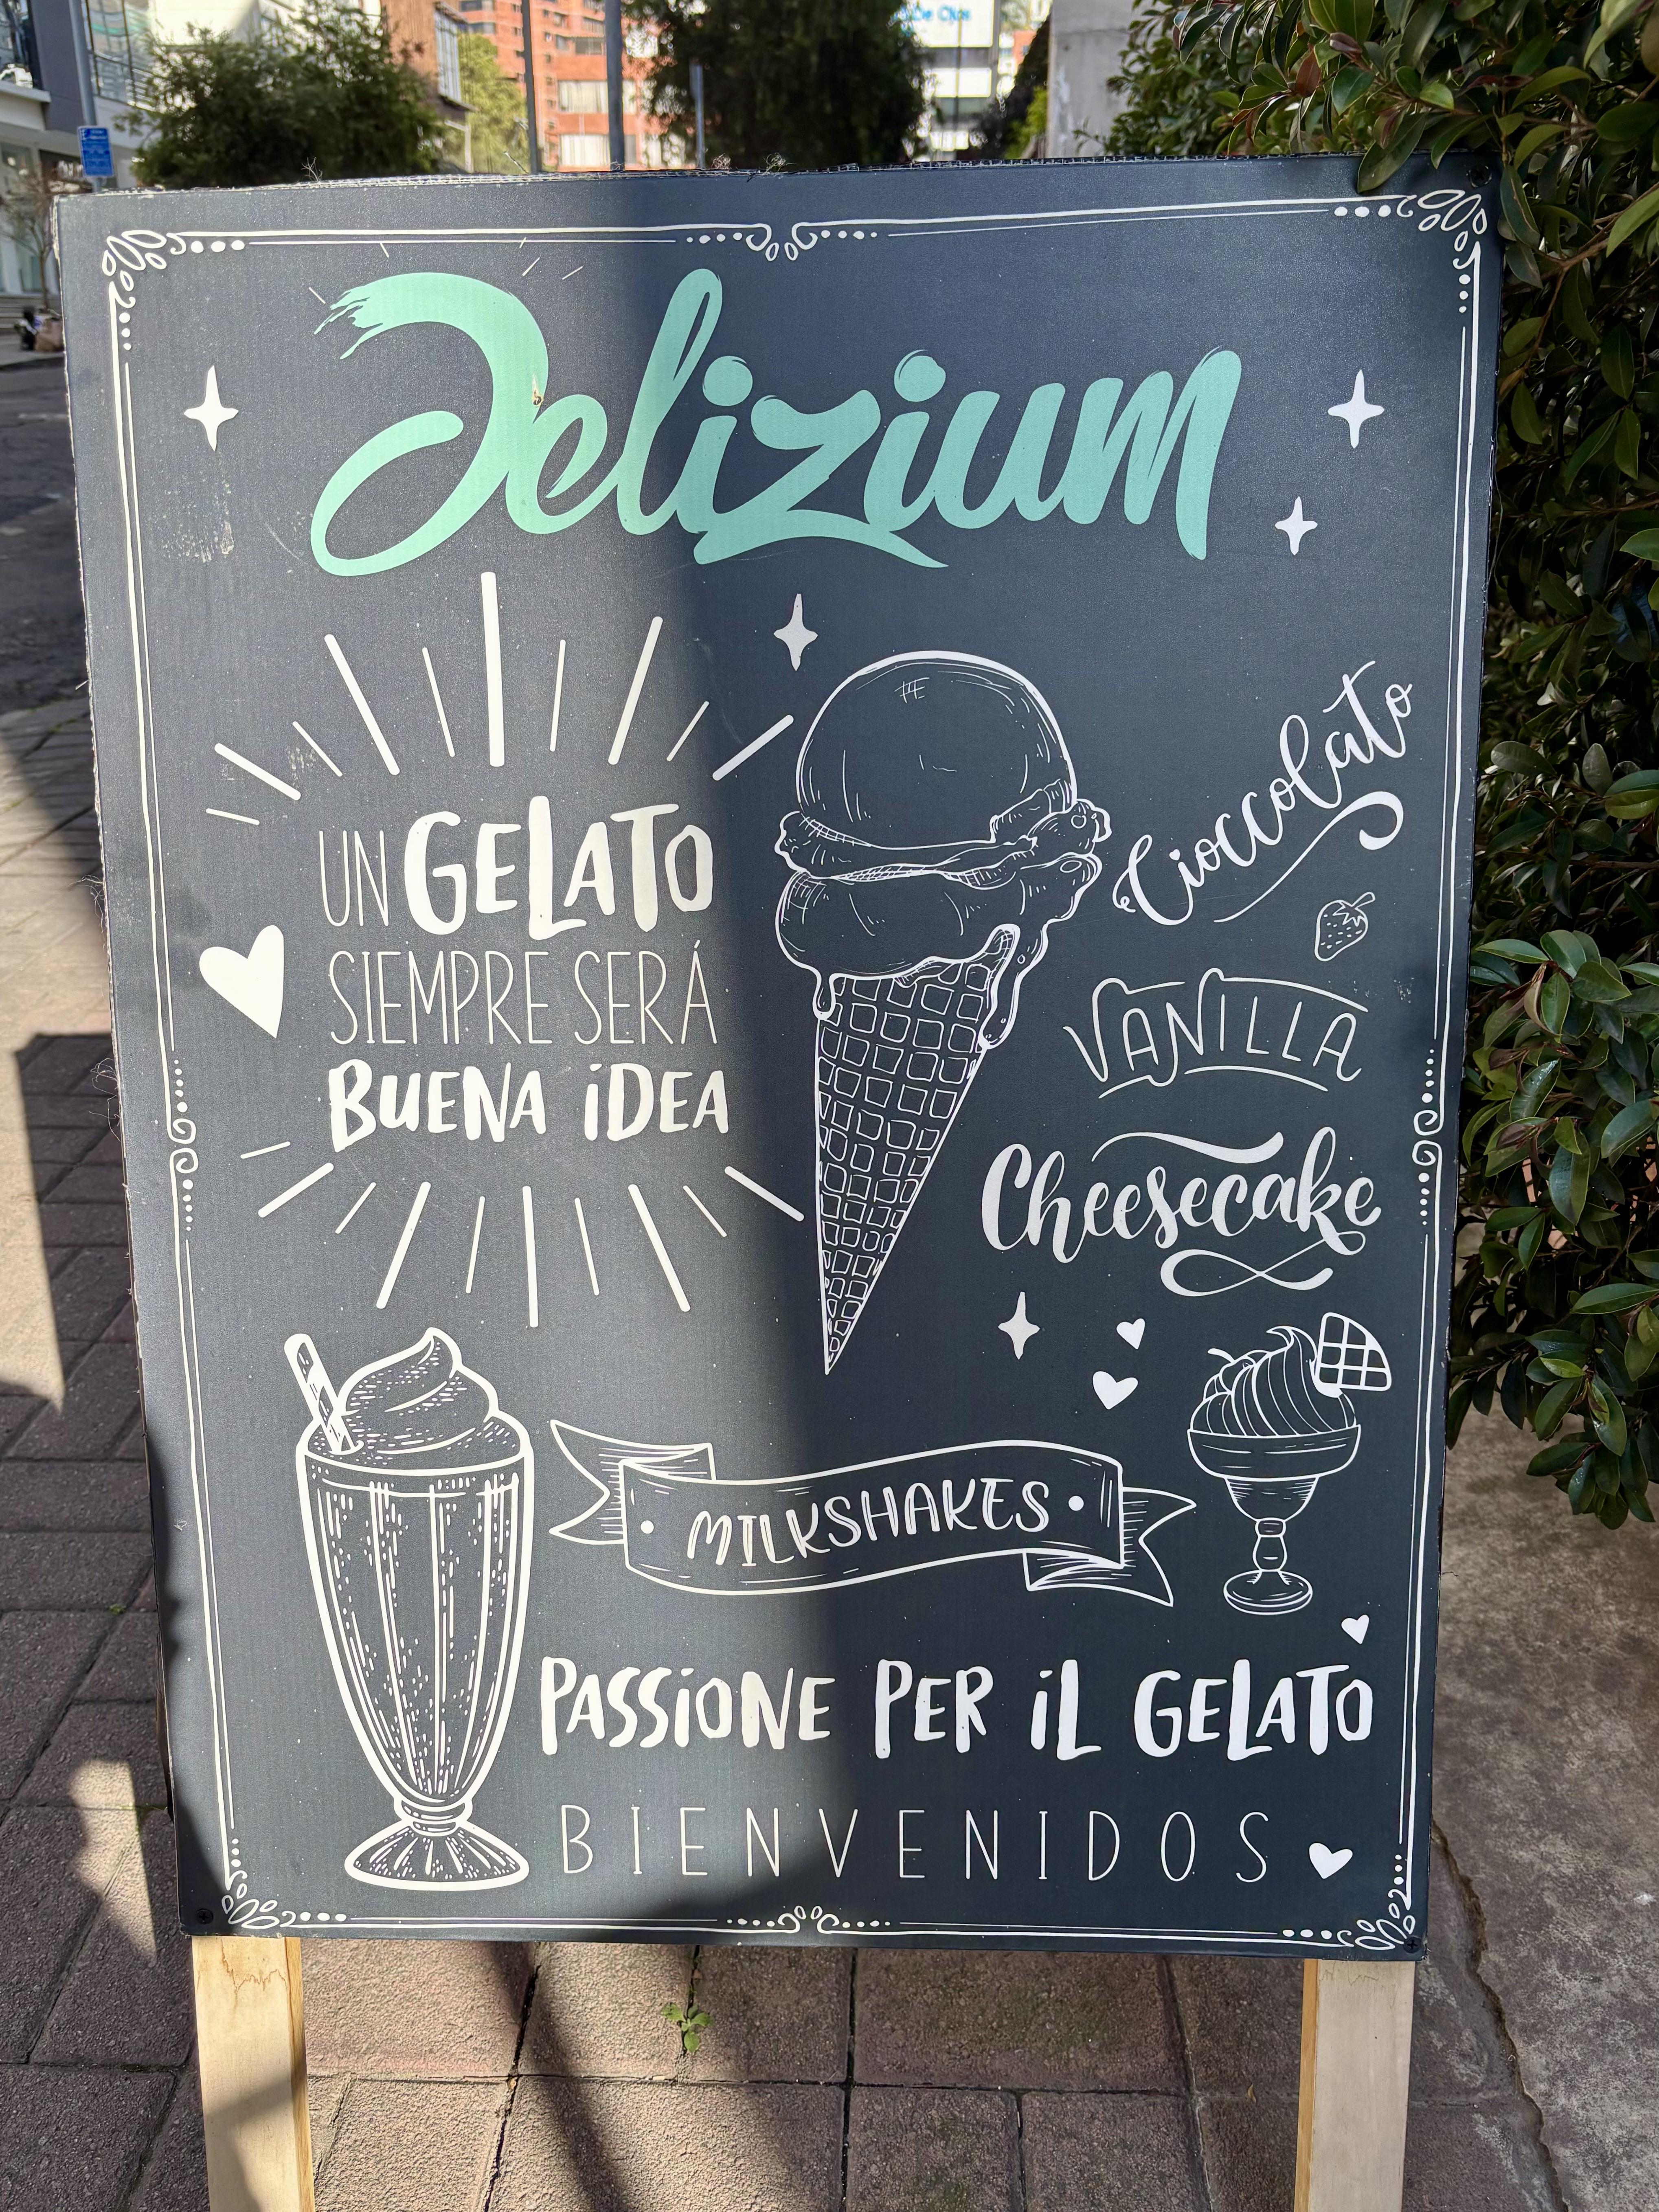 Delizium
UN GELATO
SIEMPRE SERÁ
BUENA IDEA
Cioccolato
VANILLA
Cheesecake
MILKSHAKES
PASSIONE PER IL GELATO
BIENVENIDOS